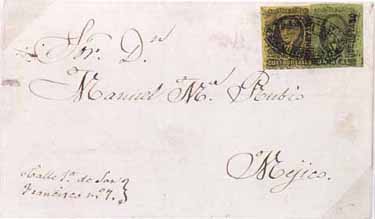 Sor. Dn
Manuel Ma. Rubio
Mejico.
Calle 1a. de San
Francisco no 7.